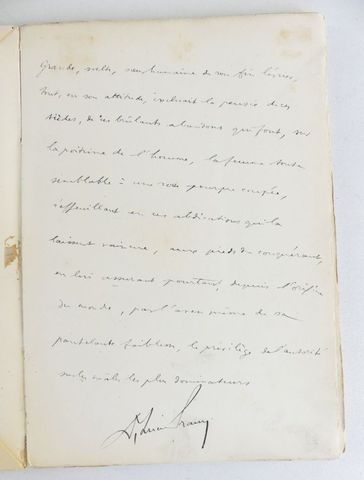 Grande, svelte, sanguinaire de son fin
tout, en son attitude, évoluait la pensée de ces
tièdes, de ces brûlants abandons qui font, sur
la poitrine de l'homme, la femme toute
semblable à une rose pourpre coupée,
s'effeuillant en ces abdications qui la
laissent vaincue, aux pieds du conquérant,
en lui assurant pourtant, depuis l'origine
du monde, par l'aveu même de sa
pantelante faiblesse, le privilège de l'autorité
sur les mâles les plus dominateurs